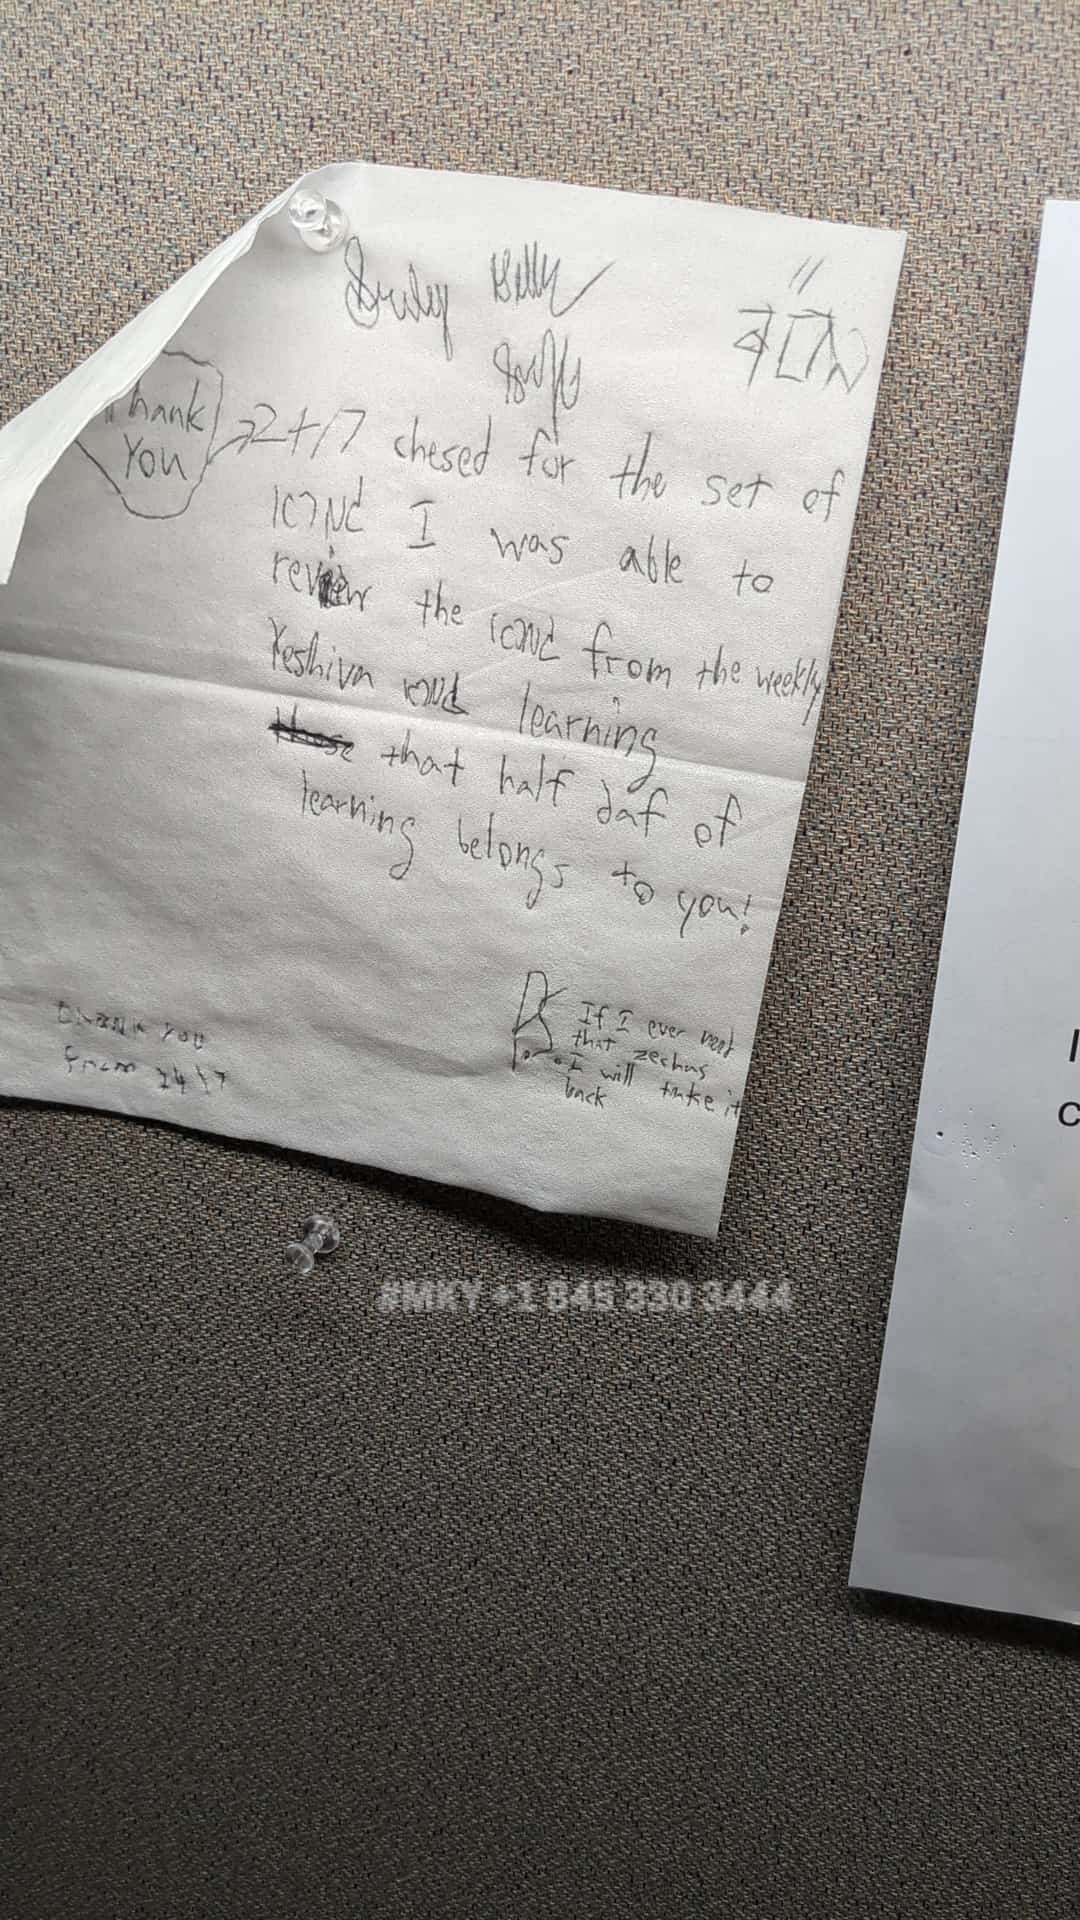 בס"ד
Thank
You
24/7 chesed for the set of
גמרא I was able to
review the גמרא from the weekly
Yeshiva and learning
that half daf of
learning belongs to you!
If I ever need
that zechus
I will take it
back
Thank You
from 24\7
8MKY +1 845 330 3444
I
c